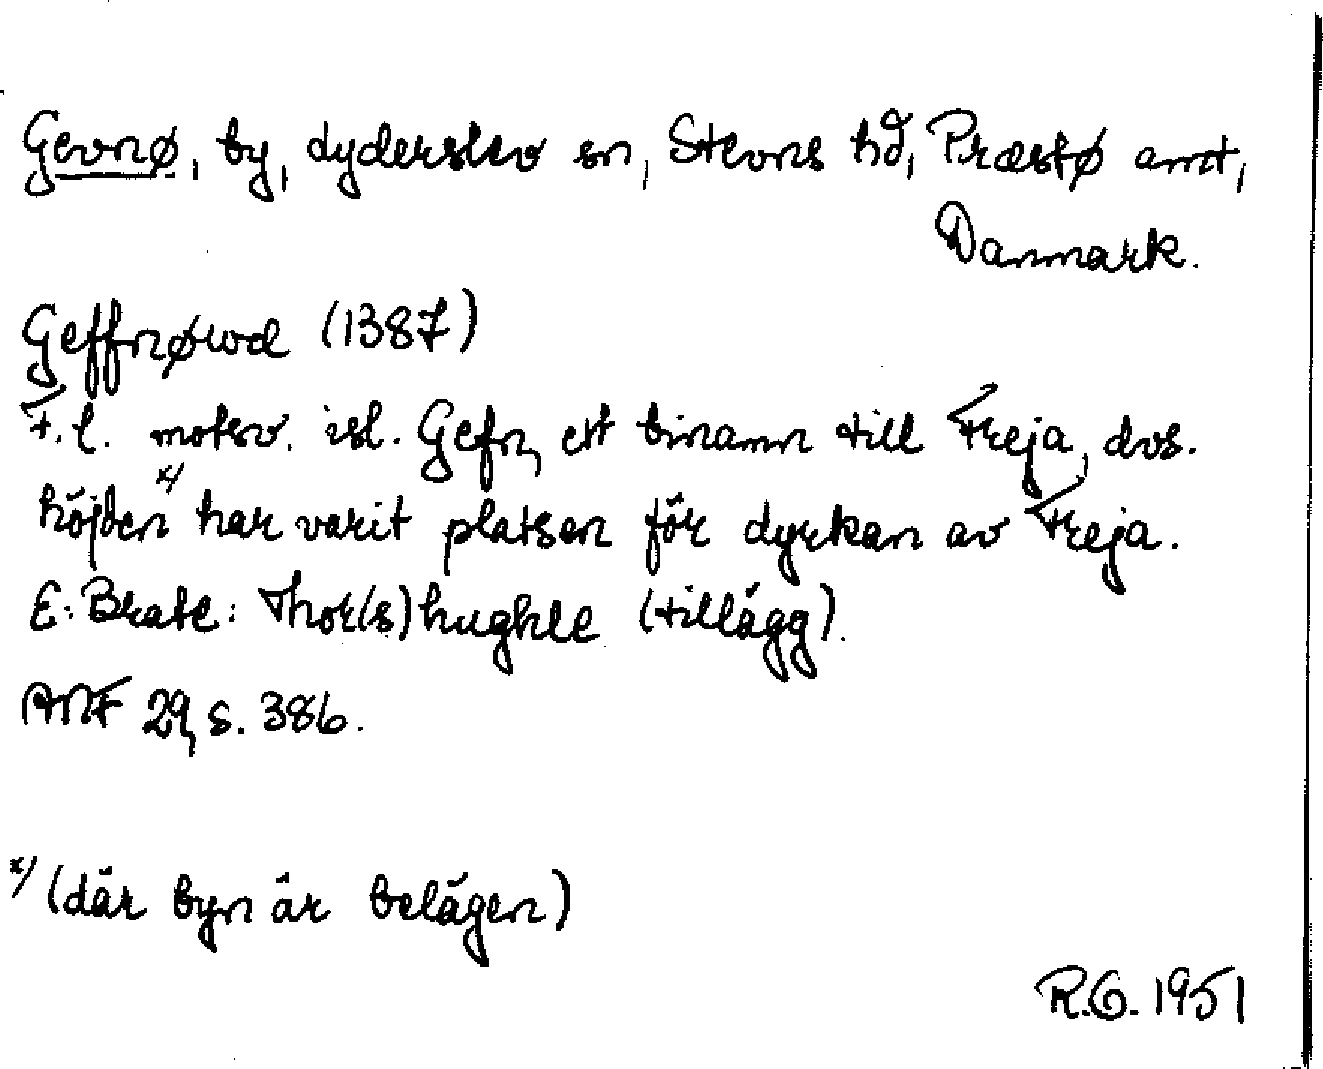 Gevnø, by, dyderslev sn, Stevns hd, Præstø amt,
Danmark.
Geffnøwæ (1387)
F.l. motsv. isl. Gefn, ett binamn till Freja, dvs.
höjden x/ har varit platsen för dyrkan av Freja.
E. Brate: Thor(s)hughle (tillägg).
ANF 29, s. 386.
x/ (där byn är belägen)
R.G. 1951